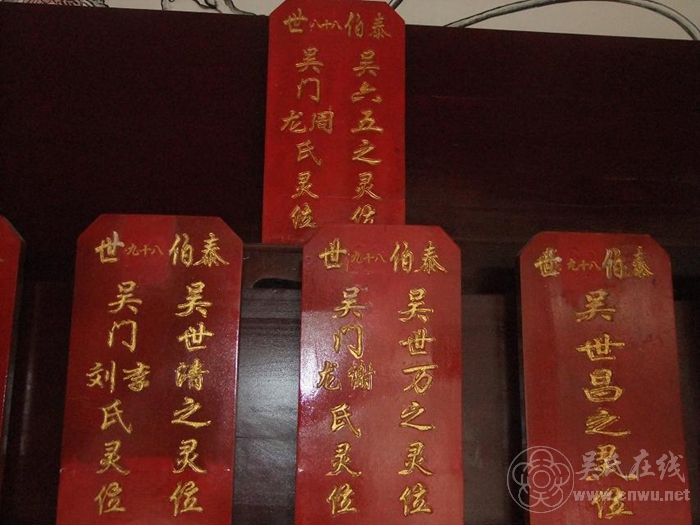 泰伯八十八世
吴六五之灵位
吴门周龙氏灵位
泰伯八十九世
吴世清之灵位
吴门李刘氏灵位
泰伯八十九世
吴世万之灵位
吴门谢龙氏灵位
泰伯八十九世
吴世昌之灵位
吴氏在线
www.cnwu.net